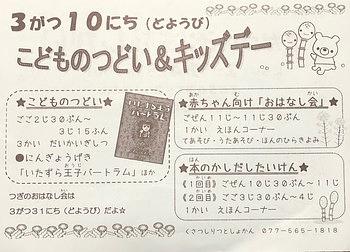 3がつ10にち(とようび)
こどものつどい&キッズデー
★こどものつどい★
ごご2じ30ぷん～
3じ15ふん
3かい だいかいぎしつ
●にんぎょうげき
「いたずら王子バートラム」ほか
いたずら王子
バートラム
つぎのおはなし会は
3がつ31にち(とようび)だよ☆
★赤ちゃん向け「おはなし会」★
ごぜん11じ～11じ30ぷん
1かい えほんコーナー
てあそび・うたあそび・ほんのひらきよみ
★本のかしだしたいけん★
《1回目》ごぜん10じ30ぷん～11じ
《2回目》ごご3じ30ぷん～4じ
1かい えほんコーナー
くさつしりつとしょかん 077-565-1818